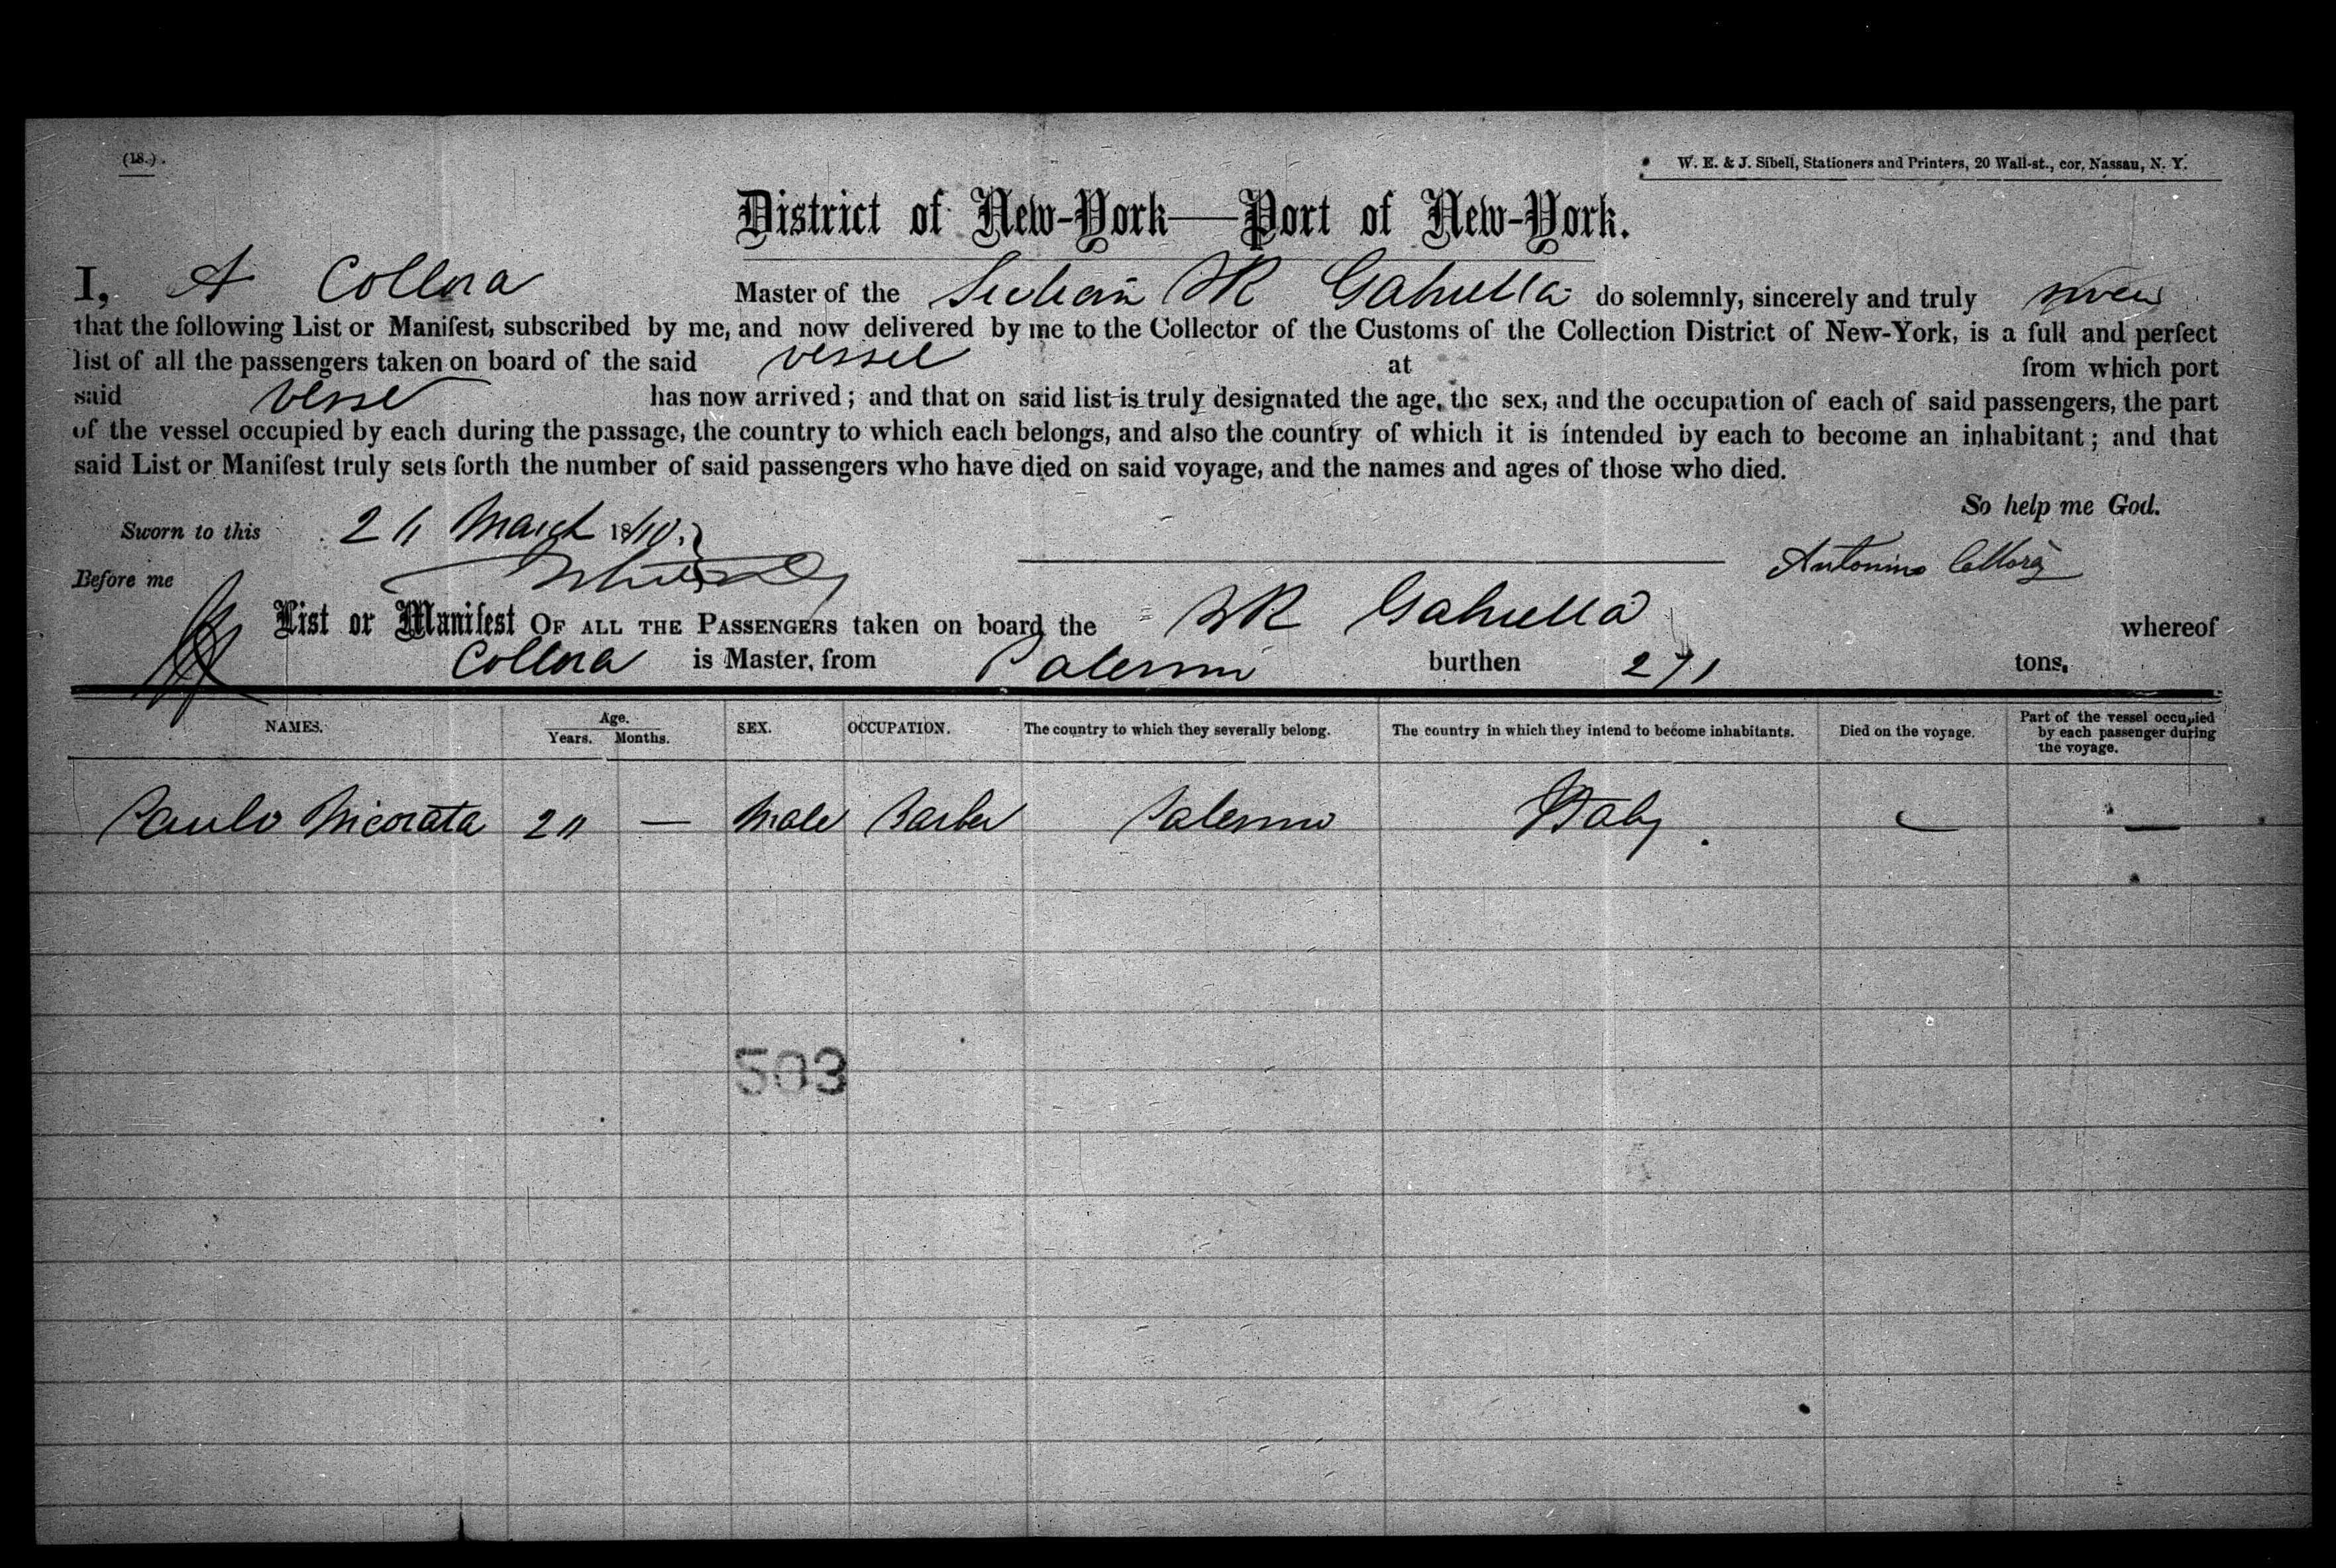 (18.)
W. E. & J. Sibell, Stationers and Printers, 20 Wall-st., cor. Nassau, N. Y.
District of New-York—Port of New-York.
I, A Collora Master of the BR Gabriella do solemnly, sincerely and truly swear
that the following List or Manifest, subscribed by me, and now delivered by me to the Collector of the Customs of the Collection District of New-York, is a full and perfect
list of all the passengers taken on board of the said vessel at from which port
said vessel has now arrived; and that on said list is truly designated the age, the sex, and the occupation of each of said passengers, the part
of the vessel occupied by each during the passage, the country to which each belongs, and also the country of which it is intended by each to become an inhabitant; and that
said List or Manifest truly sets forth the number of said passengers who have died on said voyage, and the names and ages of those who died.
So help me God.
Sworn to this March 18
Antonino Collora
Before me
List or Manifest OF ALL THE PASSENGERS taken on board the BR Gabriella whereof
Collora is Master, from Palermo burthen 271 tons.
NAMES. Age. Years. Months. SEX. OCCUPATION. The country to which they severally belong. The country in which they intend to become inhabitants. Died on the voyage. Part of the vessel occupied by each passenger during the voyage.
Paulo Micorata — Male Barber Palermo Italy. — —
503